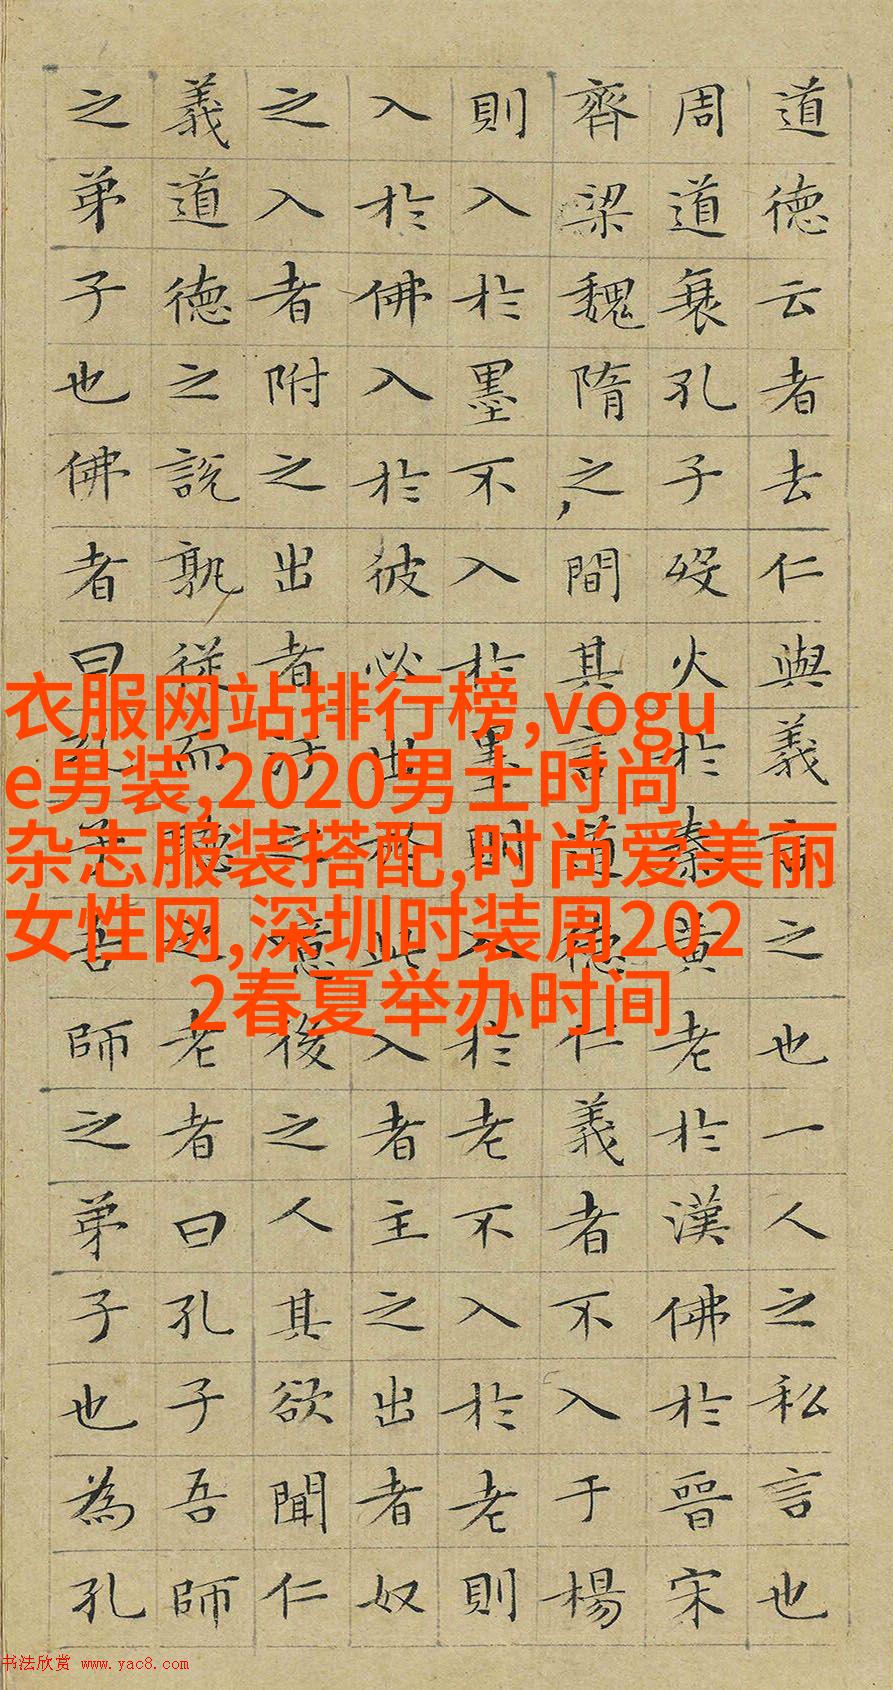 道德云者去仁與義言之也一人之私言也
周道衰孔子歿火於秦黃老於漢佛於晉宋
齊梁魏隋之間其言道德仁義者不入于楊
則入於墨不入於墨則入於老不入於老則
入於佛入於彼必出於此入者主之出者奴
之入者附之出者汙之噫後之人其欲聞仁
義道德之說孰從而聽之老者曰孔子吾師
之弟子也佛者曰孔子吾師之弟子也為孔
衣服网站排行榜,vogu
e男装,2020男士时尚
杂志服装搭配,时尚爱美丽
女性网,深圳时装周202
2春夏举办时间
书法欣赏 www.yac8.com